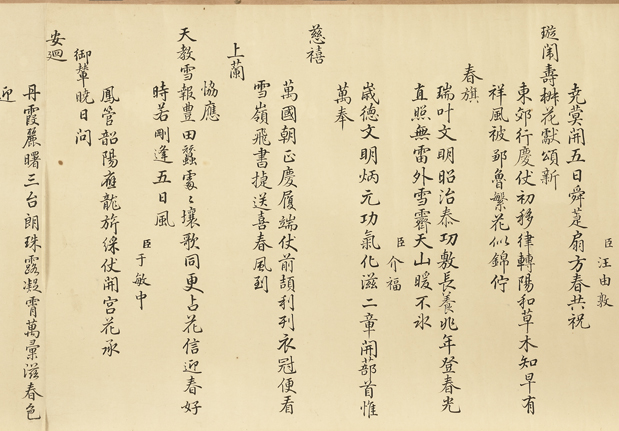 臣汪由敦
堯蓂開五日舜萐扇方春共祝
璇闈壽花獻頌新
東郊行慶仗初移律轉陽和草木知早有
祥風被鄒魯繁花似錦佇
春旗
瑞叶文明昭治泰功敷長養兆年登春光
直照無雷外雪霽天山暖不氷
臣介福
嵗德文明炳元功氣化滋二章開蔀首惟
萬奉
慈禧
萬國朝正慶履端仗前頡利列衣冠便看
雪嶺飛書捷送喜春風到
上蘭
協應
天教雪報豊田處〻壤歌同更占花信迎春好
時若剛逢五日風
臣于敏中
鳳管韶陽應龍旂綵仗開宮花承
御輦晚日問
安廻
丹霞麗曙三台朗珠露凝霄萬彙滋春色
迎